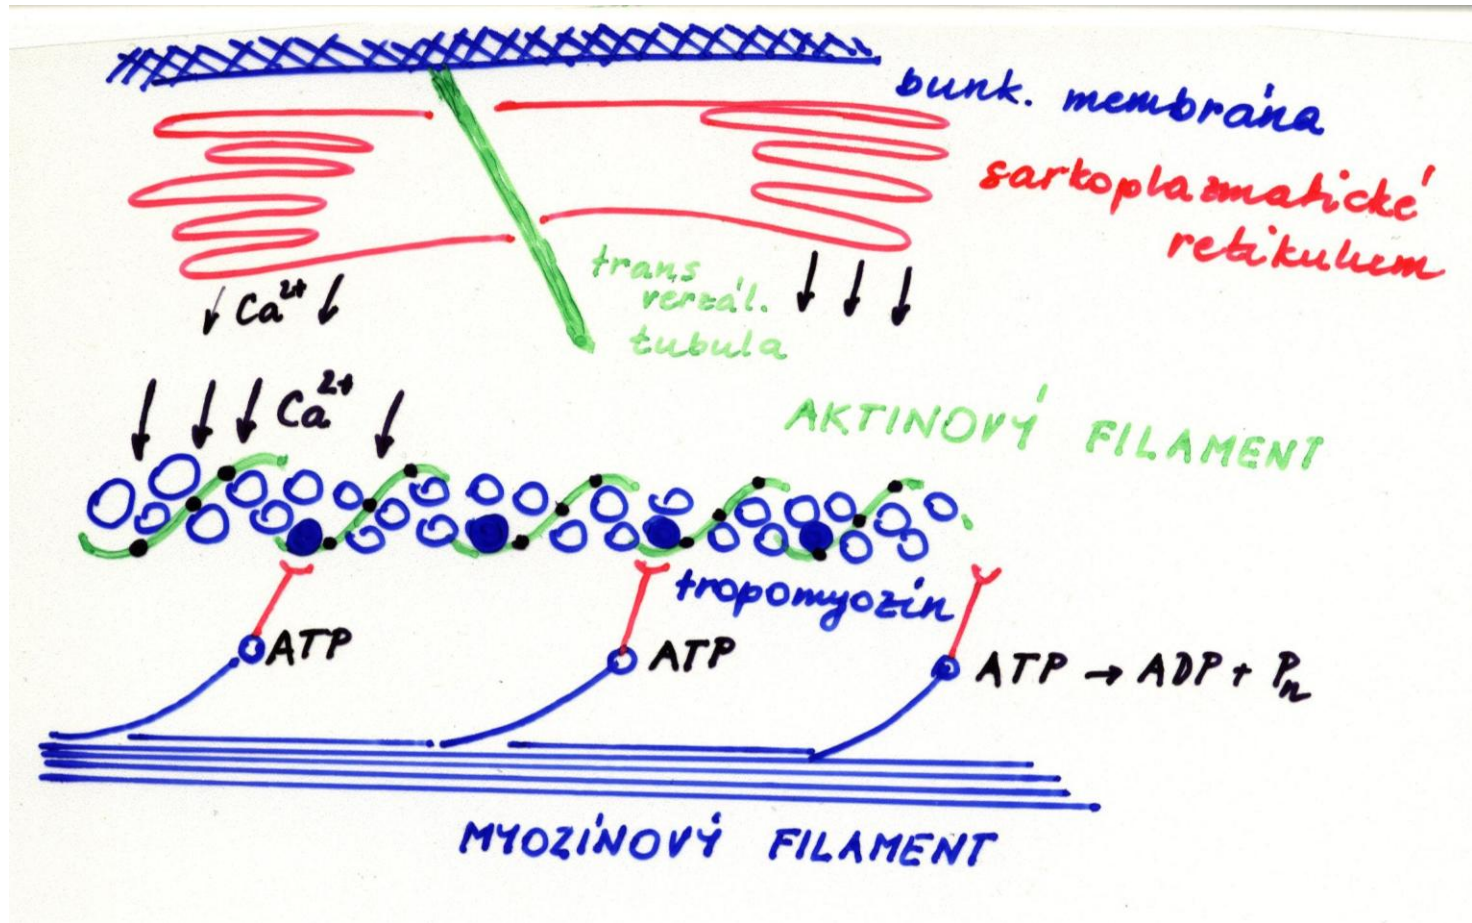 bunk. membrána
sarkoplazmatické
retikulum
trans
verzál.
tubula
Ca2+
Ca2+
AKTINOVÝ FILAMENT
tropomyozín
ATP
ATP
ATP → ADP + Pn
MYOZÍNOVÝ FILAMENT